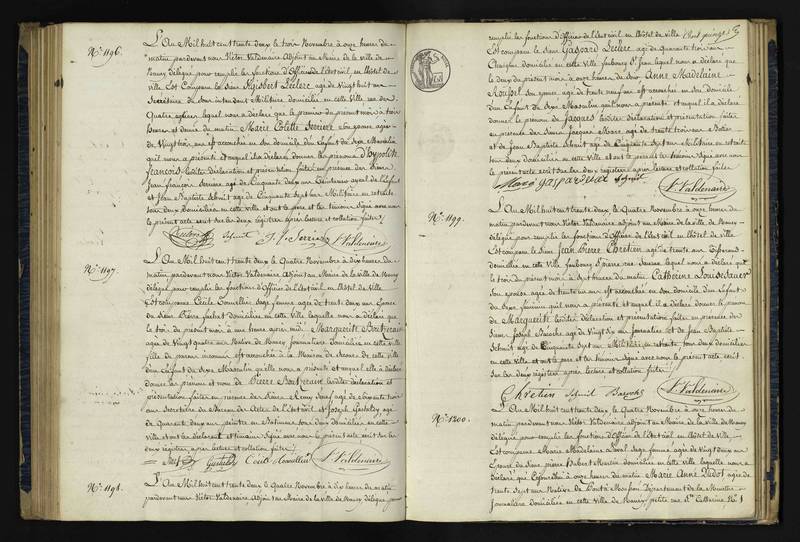 N.° 1196.
L'An Mil huit cent trente deux le trois Novembre à onze heures du
matin pardevant nous Victor Valdenaire Adjoint au Maire de la ville de
Nancy délégué pour remplir les fonctions d'Officier de l'état civil en l'hôtel de
ville Est Comparu le Sieur Leclerc agé de Vingt huit ans
Secrétaire du Sous intendant Militaire domicilié en cette Ville rue des
Quatre églises lequel nous a déclaré que le premier du présent mois à trois
heures du matin Marie Colette Serrière son épouse agée
de Vingt trois ans est accouchée en son domicile d'un Enfant du Sexe Masculin
qu'il nous a présenté et auquel il a déclaré donner les prénoms d'hypolite
françois lesdites déclaration et présentation faites en présence des Sieurs
Jean françois Serrière agé de Cinquante deux ans de l'Enfant
et Jean Baptiste Schmit agé de Cinquante Sept ans Militaire en retraite
tous deux domiciliés en cette ville et ont le père et les témoins Signé avec nous
le présent acte écrit sur les deux registres après lecture et collation faites
Schmit J. f. Serrière V. Valdenaire
N.° 1197.
L'An Mil huit cent trente deux le Quatre Novembre à dix heures du
matin pardevant nous Victor Valdenaire Adjoint au Maire de la Ville de Nancy
délégué pour remplir les fonctions d'Officier de l'état civil en l'hôtel de Ville
Est comparue Cécile Sage femme agée de trente deux ans
du Sieur domiciliée en cette Ville laquelle nous a déclaré que
le trois du présent mois à une heure après midi Marguerite
agée de Vingt quatre ans Native de Nancy journalière domiciliée en cette ville
fille de parens inconnus est accouchée à la Maison de Secours de cette ville
d'un Enfant du Sexe Masculin qu'elle nous a présenté et auquel elle a déclaré
donner les prénom et nom de Pierre lesdites déclaration et
présentation faites en présence des Sieurs Remy agé de soixante trois
ans Secrétaire au Bureau des Actes de l'état civil et Joseph agé
de Quarante deux ans peintre en Batimens tous deux domiciliés en cette
ville et ont la déclarante et témoins Signé avec nous le présent acte écrit sur les
deux registres après lecture et collation faites
V. Valdenaire
N.° 1198.
L'An Mil huit cent trente deux le Quatre Novembre à dix heures du matin
pardevant nous Victor Valdenaire, Adjoint au Maire de la ville de Nancy délégué pour
remplir les fonctions d'Officier de l'état civil en l'hôtel de ville
Est comparu le Sieur Gaspard Leclerc agé de quarante trois ans
domicilié en cette Ville faubourg S.t Jean lequel nous a déclaré que
le deux du présent mois à onze heures du soir Anne Madelaine
Roussel son épouse agée de trente neuf ans est accouchée en son domicile
d'un Enfant du Sexe Masculin qu'il nous a présenté et auquel il a déclaré
donner le prénom de Jacques lesdites déclaration et présentation faites
en présence des Sieurs Jacques Marc agé de trente trois ans
et de Jean Baptiste Schmit agé de Cinquante Sept ans Militaire en retraite
tous deux domiciliés en cette ville et ont le père et les témoins Signé avec nous
le présent acte écrit sur les deux registres après lecture et collation faites
Marc gaspard Schmit V. Valdenaire
N.° 1199.
L'An Mil huit cent trente deux, le Quatre Novembre à onze heures du
matin pardevant nous Victor Valdenaire Adjoint au Maire de la ville de Nancy
délégué pour remplir les fonctions d'Officier de l'état civil en l'hôtel de ville
Est comparu le Sieur Jean Pierre Chrétien agé de trente ans
domicilié en cette Ville faubourg S.t pierre lequel nous a déclaré que
le trois du présent mois à sept heures du matin Catherine
Son épouse agée de trente un ans est accouchée en son domicile d'un Enfant
du Sexe féminin qu'il nous a présenté et auquel il a déclaré donner le prénom
de Marguerite lesdites déclaration et présentation faites en présence des
Sieurs Joseph agé de Vingt six ans journalier et de Jean Baptiste
Schmit agé de Cinquante Sept ans Militaire en retraite tous deux domiciliés
en cette Ville et ont le père et les témoins Signé avec nous le présent acte écrit
sur les deux registres après lecture et collation faites
Chretien Schmit V. Valdenaire
N.° 1200.
L'An Mil huit cent trente deux, le Quatre Novembre à onze heures du
matin pardevant nous Victor Valdenaire Adjoint au Maire de la Ville de Nancy
délégué pour remplir les fonctions d'Officier de l'état civil en l'hôtel de Ville
Est comparue Marie Madelaine Sage femme agée de Vingt deux ans
Epouse du Sieur pierre Hubert domiciliée en cette Ville laquelle nous a
déclaré que heures du matin Marie Anne agée de
trente sept ans Native de Pont à Mousson Département de la Meurthe
journalière domiciliée en cette Ville de Nancy, petite rue S.te Catherine, N.° 1